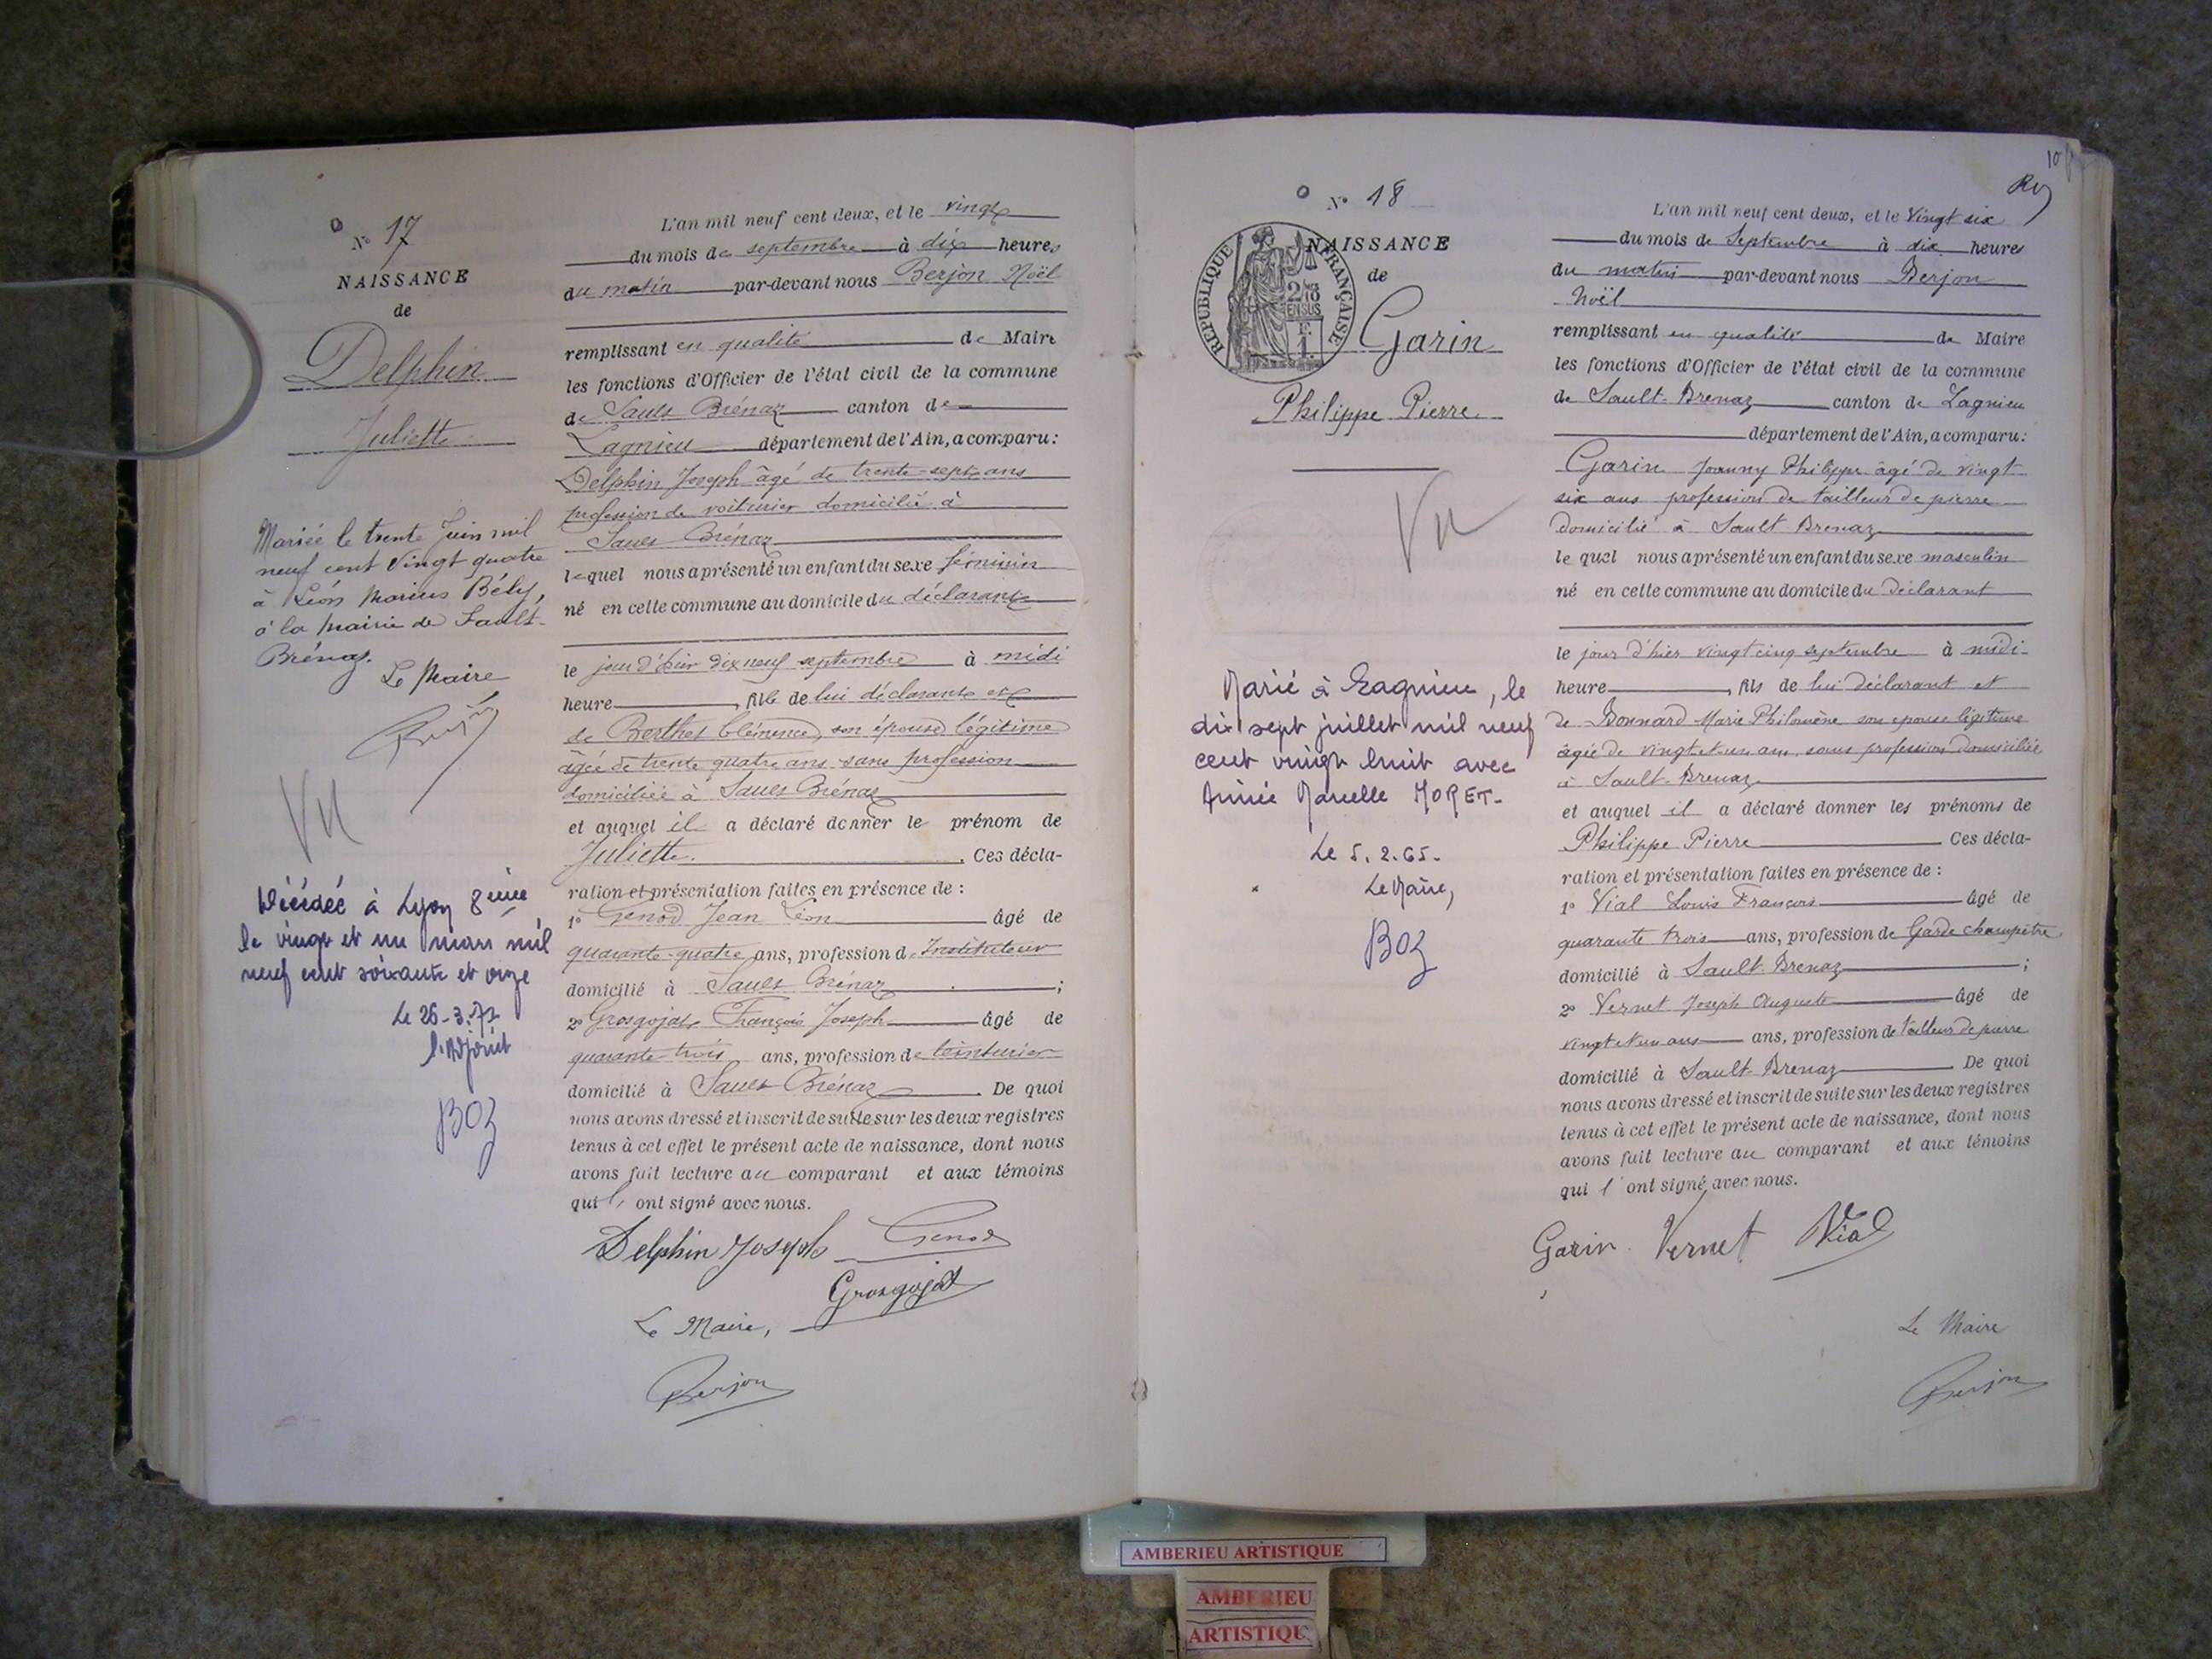 N° 17
NAISSANCE
de
Delphin
Juliette
Mariée le trente Juin mil
neuf cent vingt quatre
à Léon Marius Bély,
à la Mairie de Sault-
Brénaz.
Le Maire
Vu
Décédée à Lyon 8ième
le vingt et un mars mil
neuf cent soixante et onze
Le 26-3-71
l'Adjoint
Boz
L'an mil neuf cent deux, et le vingt
du mois de septembre à dix heures
du matin par-devant nous Berjon Noël
remplissant en qualité de Maire
les fonctions d'Officier de l'état civil de la commune
de Sault Brénaz canton de
Lagnieu département de l'Ain, a comparu:
Delphin Joseph âgé de trente-sept ans
profession de voiturier domicilié à
Sault Brénaz
lequel nous a présenté un enfant du sexe féminin
né en cette commune au domicile du déclarant
le jour d'hier dix neuf septembre à midi
heure , fille de lui déclarant et
de Berthet Clémence, son épouse légitime
âgée de trente quatre ans sans profession
domiciliée à Sault Brénaz
et auquel il a déclaré donner le prénom de
Juliette. Ces décla-
ration et présentation faites en présence de :
1° Genod Jean Léon âgé de
quarante-quatre ans, profession d'Instituteur
domicilié à Sault Brénaz ;
2° Grosgojat François Joseph âgé de
quarante trois ans, profession de teinturier
domicilié à Sault Brénaz. De quoi
nous avons dressé et inscrit de suite sur les deux registres
tenus à cet effet le présent acte de naissance, dont nous
avons fait lecture au comparant et aux témoins
qui l'ont signé avec nous.
Delphin Joseph Genod
Grosgojat
Le Maire,
Berjon
10
N° 18
REPUBLIQUE FRANÇAISE
NAISSANCE
de
Garin
Philippe Pierre.
Vu
Marié à Lagnieu, le
dix sept juillet mil neuf
cent vingt huit avec
Aimée Marcelle MORET-
Le 5.2.65.
Le Maire,
Boz
L'an mil neuf cent deux, et le Vingt six
du mois de Septembre à dix heures
du matin par-devant nous Berjon
Noël
remplissant en qualité de Maire
les fonctions d'Officier de l'état civil de la commune
de Sault-Brenaz canton de Lagnieu
département de l'Ain, a comparu:
Garin Joanny Philippe âgé de vingt
six ans profession de tailleur de pierre
domicilié à Sault-Brenaz
le quel nous a présenté un enfant du sexe masculin
né en cette commune au domicile du déclarant
le jour d'hier vingt cinq septembre à midi-
heure , fils de lui déclarant et
de Bonnard Marie Philomène son épouse légitime
âgée de vingt et un ans, sans profession domiciliée
à Sault-Brenaz
et auquel il a déclaré donner les prénoms de
Philippe Pierre Ces décla-
ration et présentation faites en présence de :
1° Vial Louis François âgé de
quarante trois ans, profession de Garde champêtre
domicilié à Sault-Brenaz ;
2° Vernet Joseph Auguste âgé de
vingt et un ans ans, profession de tailleur de pierre
domicilié à Sault-Brenaz. De quoi
nous avons dressé et inscrit de suite sur les deux registres
tenus à cet effet le présent acte de naissance, dont nous
avons fait lecture au comparant et aux témoins
qui l'ont signé avec nous.
Garin Vernet Vial
Le Maire
Berjon
AMBERIEU ARTISTIQUE
AMBERIEU
ARTISTIQU